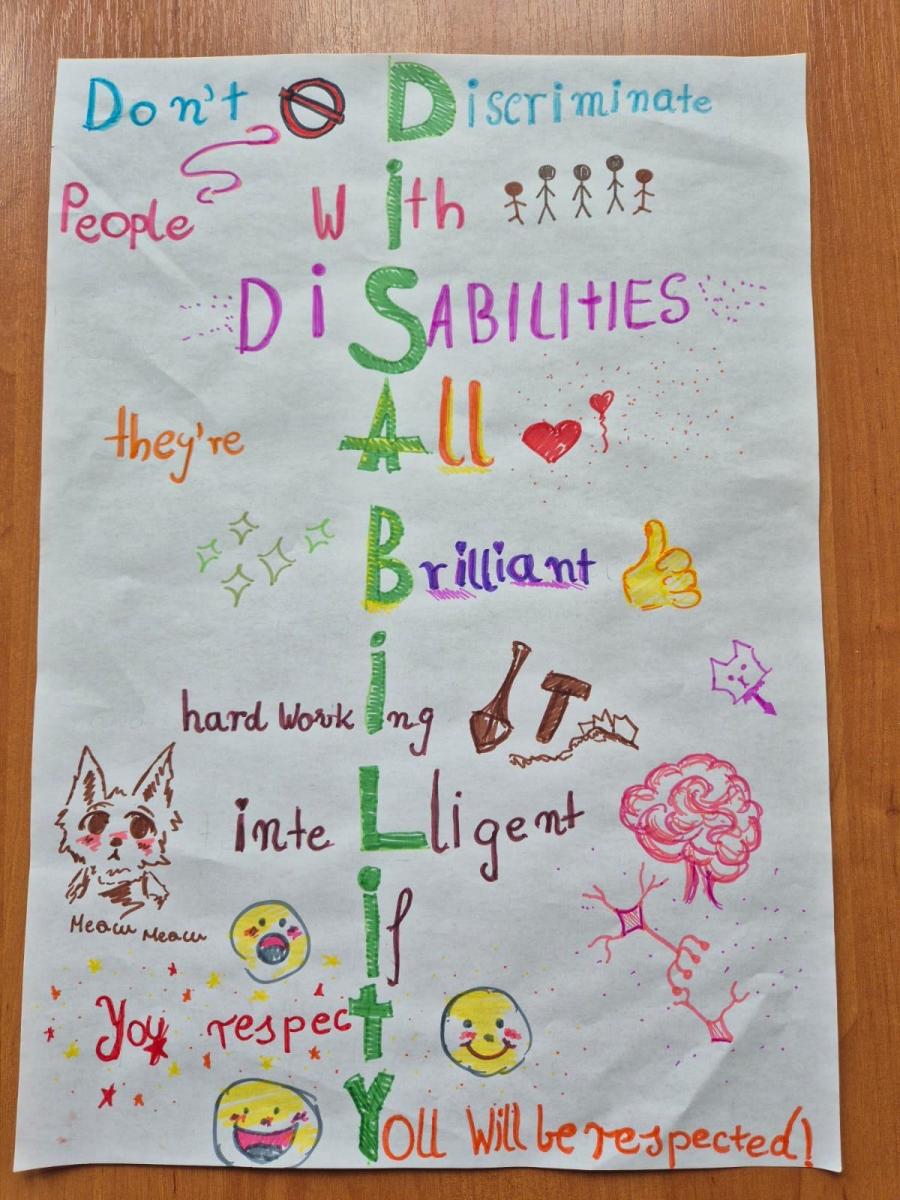 Don't Discriminate
People With
DiSABILITIES
they're All
Brilliant
hard Working
intelligent
if
Meow Meow
You respect
YOU Will be respected!